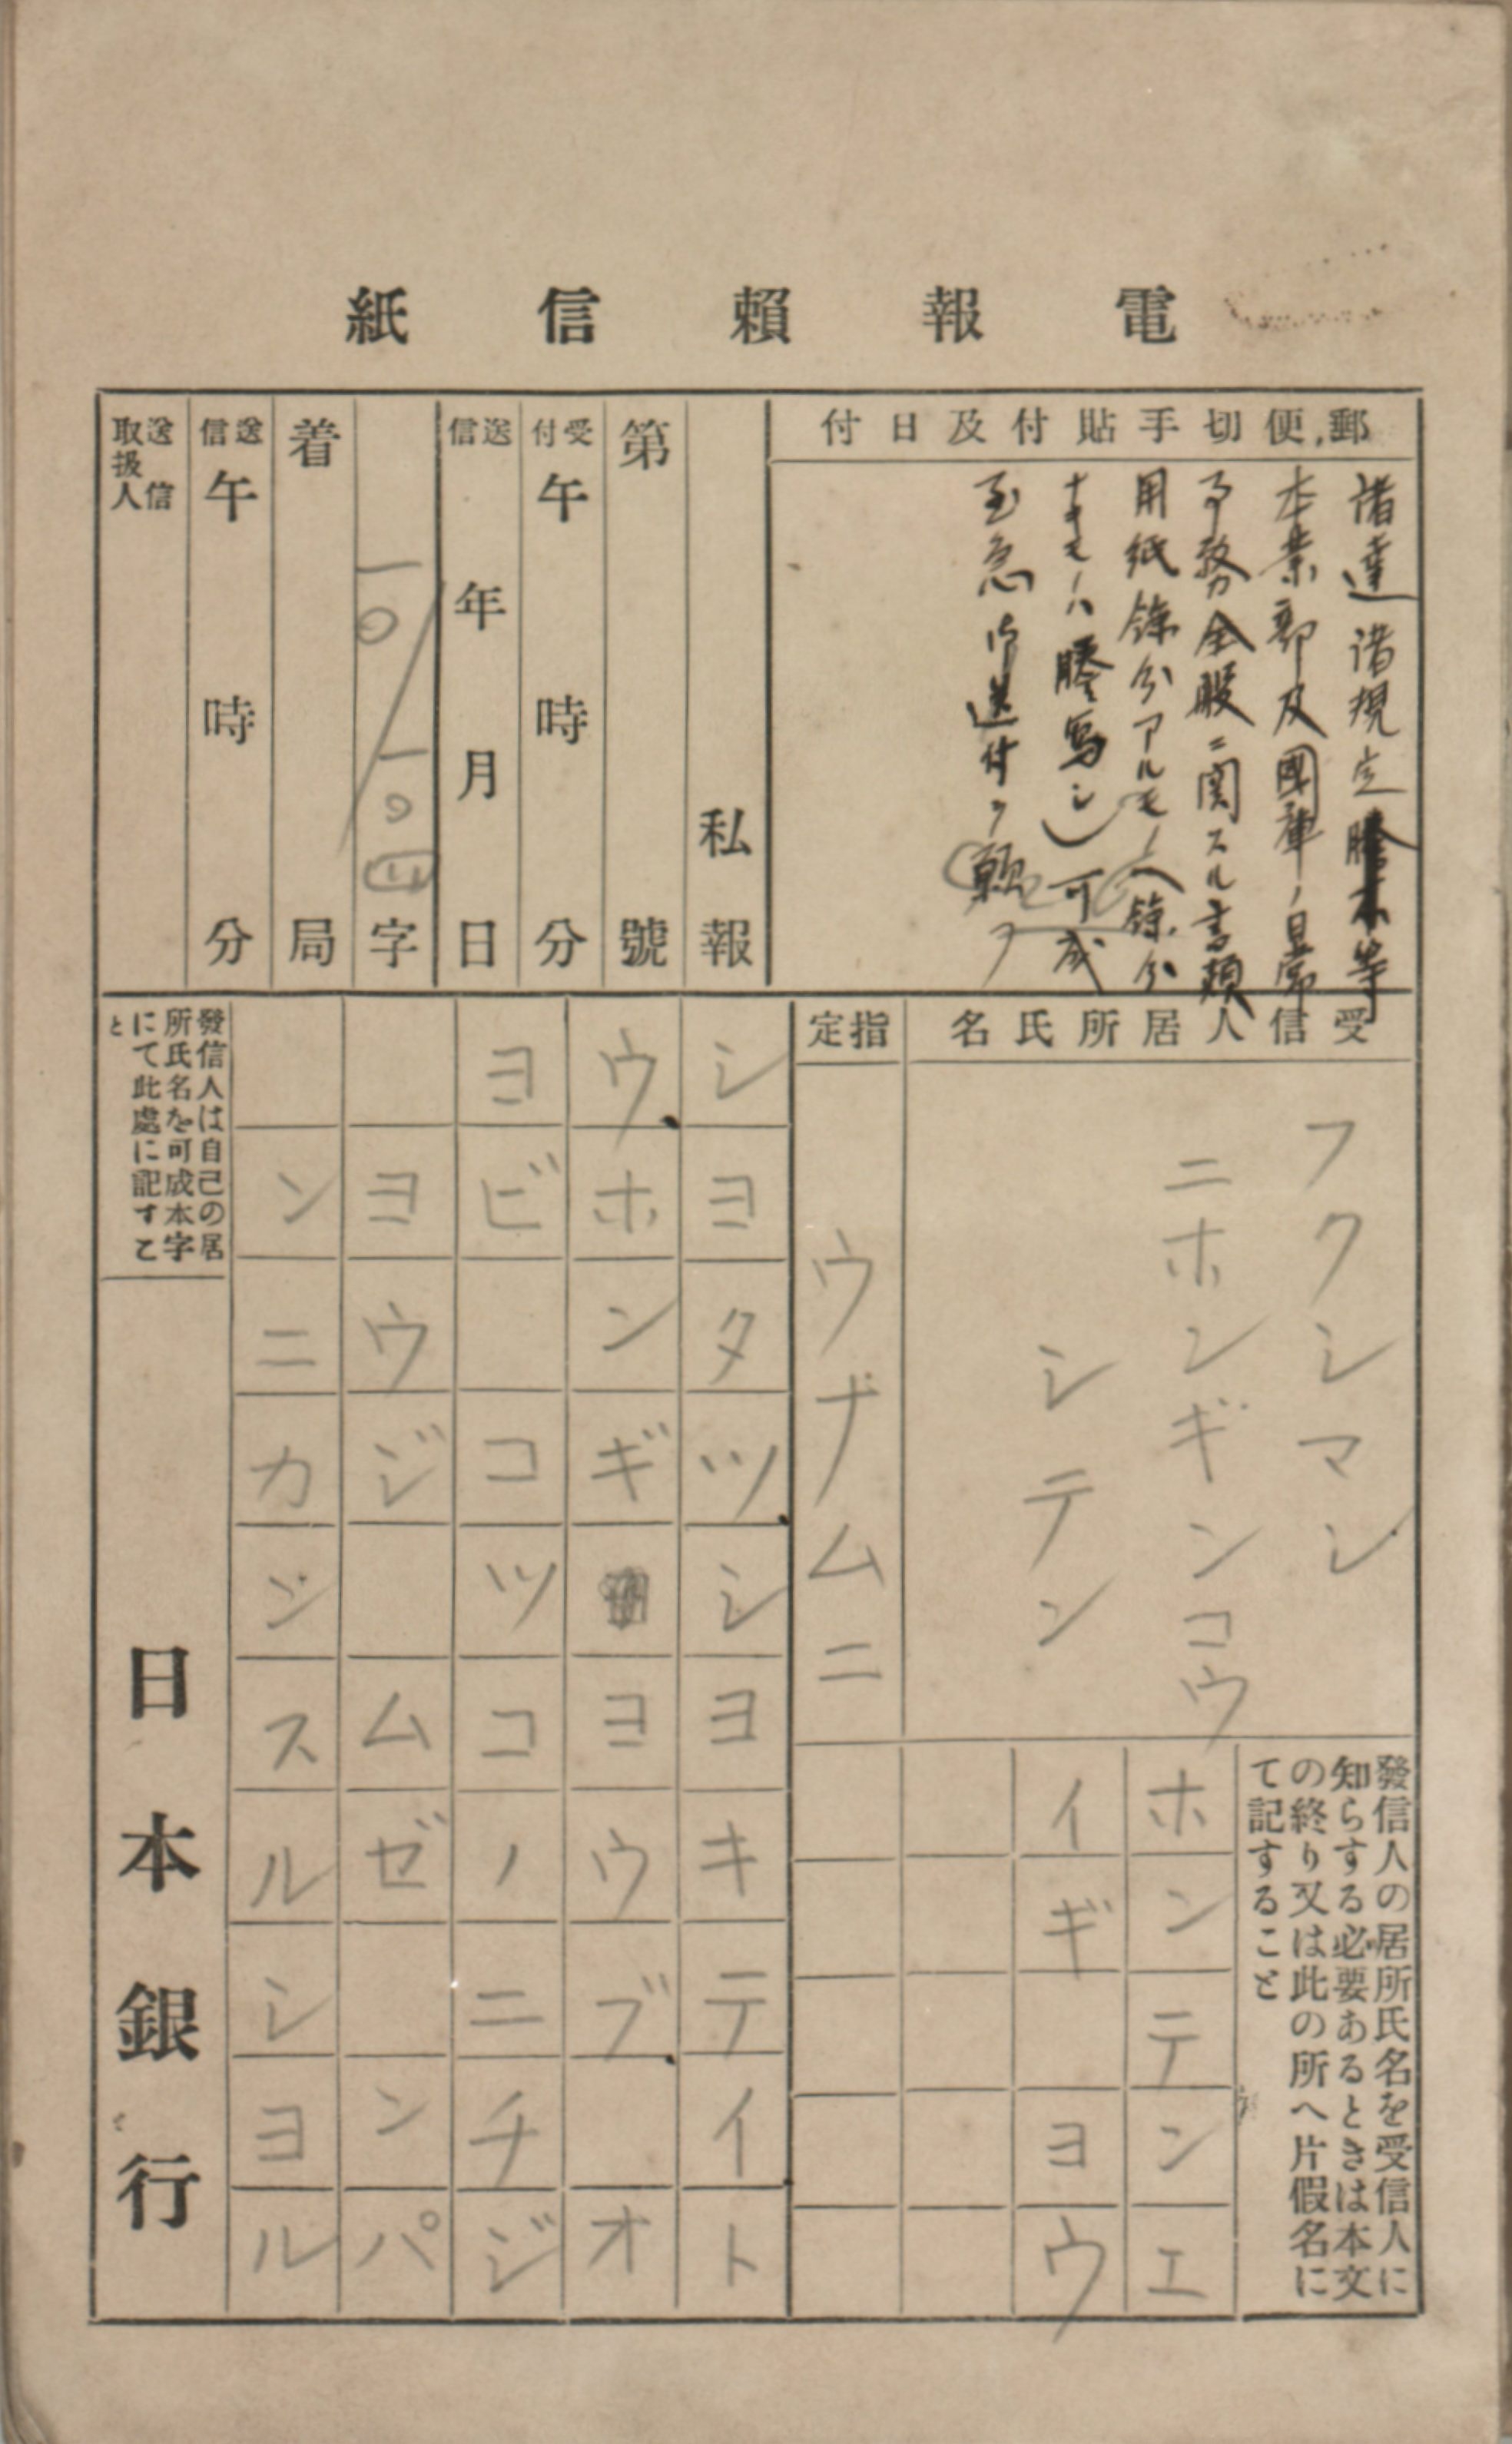 電報頼信紙
郵便切手貼付及日付
諸達諸規定謄本等
本業部及國庫ノ日常
事務全般ニ関スル書類
用紙餘分アルモノハ餘分
ナキモノハ謄写シ)可成
至急御送付ヲ頼フ
私報
第 號
受付 午 時 分
送信 年 月 日
一〇/一〇四 字
着 局
送信 午 時 分
送信取扱人
受信人居所氏名
フクシマシ
ニホンギンコウ
シテン
指定
ウナムニ
發信人の居所氏名を受信人に
知らする必要あるときは本文
の終り又は此の所へ片假名に
て記すること
ホンテンエ
イギヨウ
シヨタツシヨキテイト
ウホンギヨウブオ
ヨビコツコノニチジ
ヨウジムゼンパ
ンニカンスルシヨル
發信人は自己の居
所氏名を可成本字
にて此處に記すこ
と
日本銀行